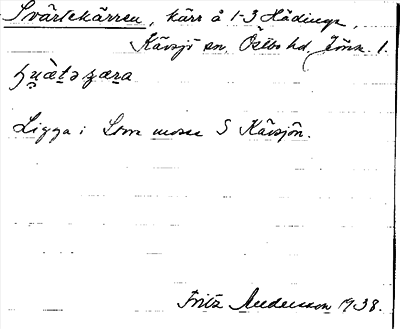 Svärtekärren, kärr å 1-3 Hädinge,
Kävsjö sn. Östbo hd, Jönk. l.
Ligga i Stora mosse S Kävsjön.
Fritz Andersson 1938.